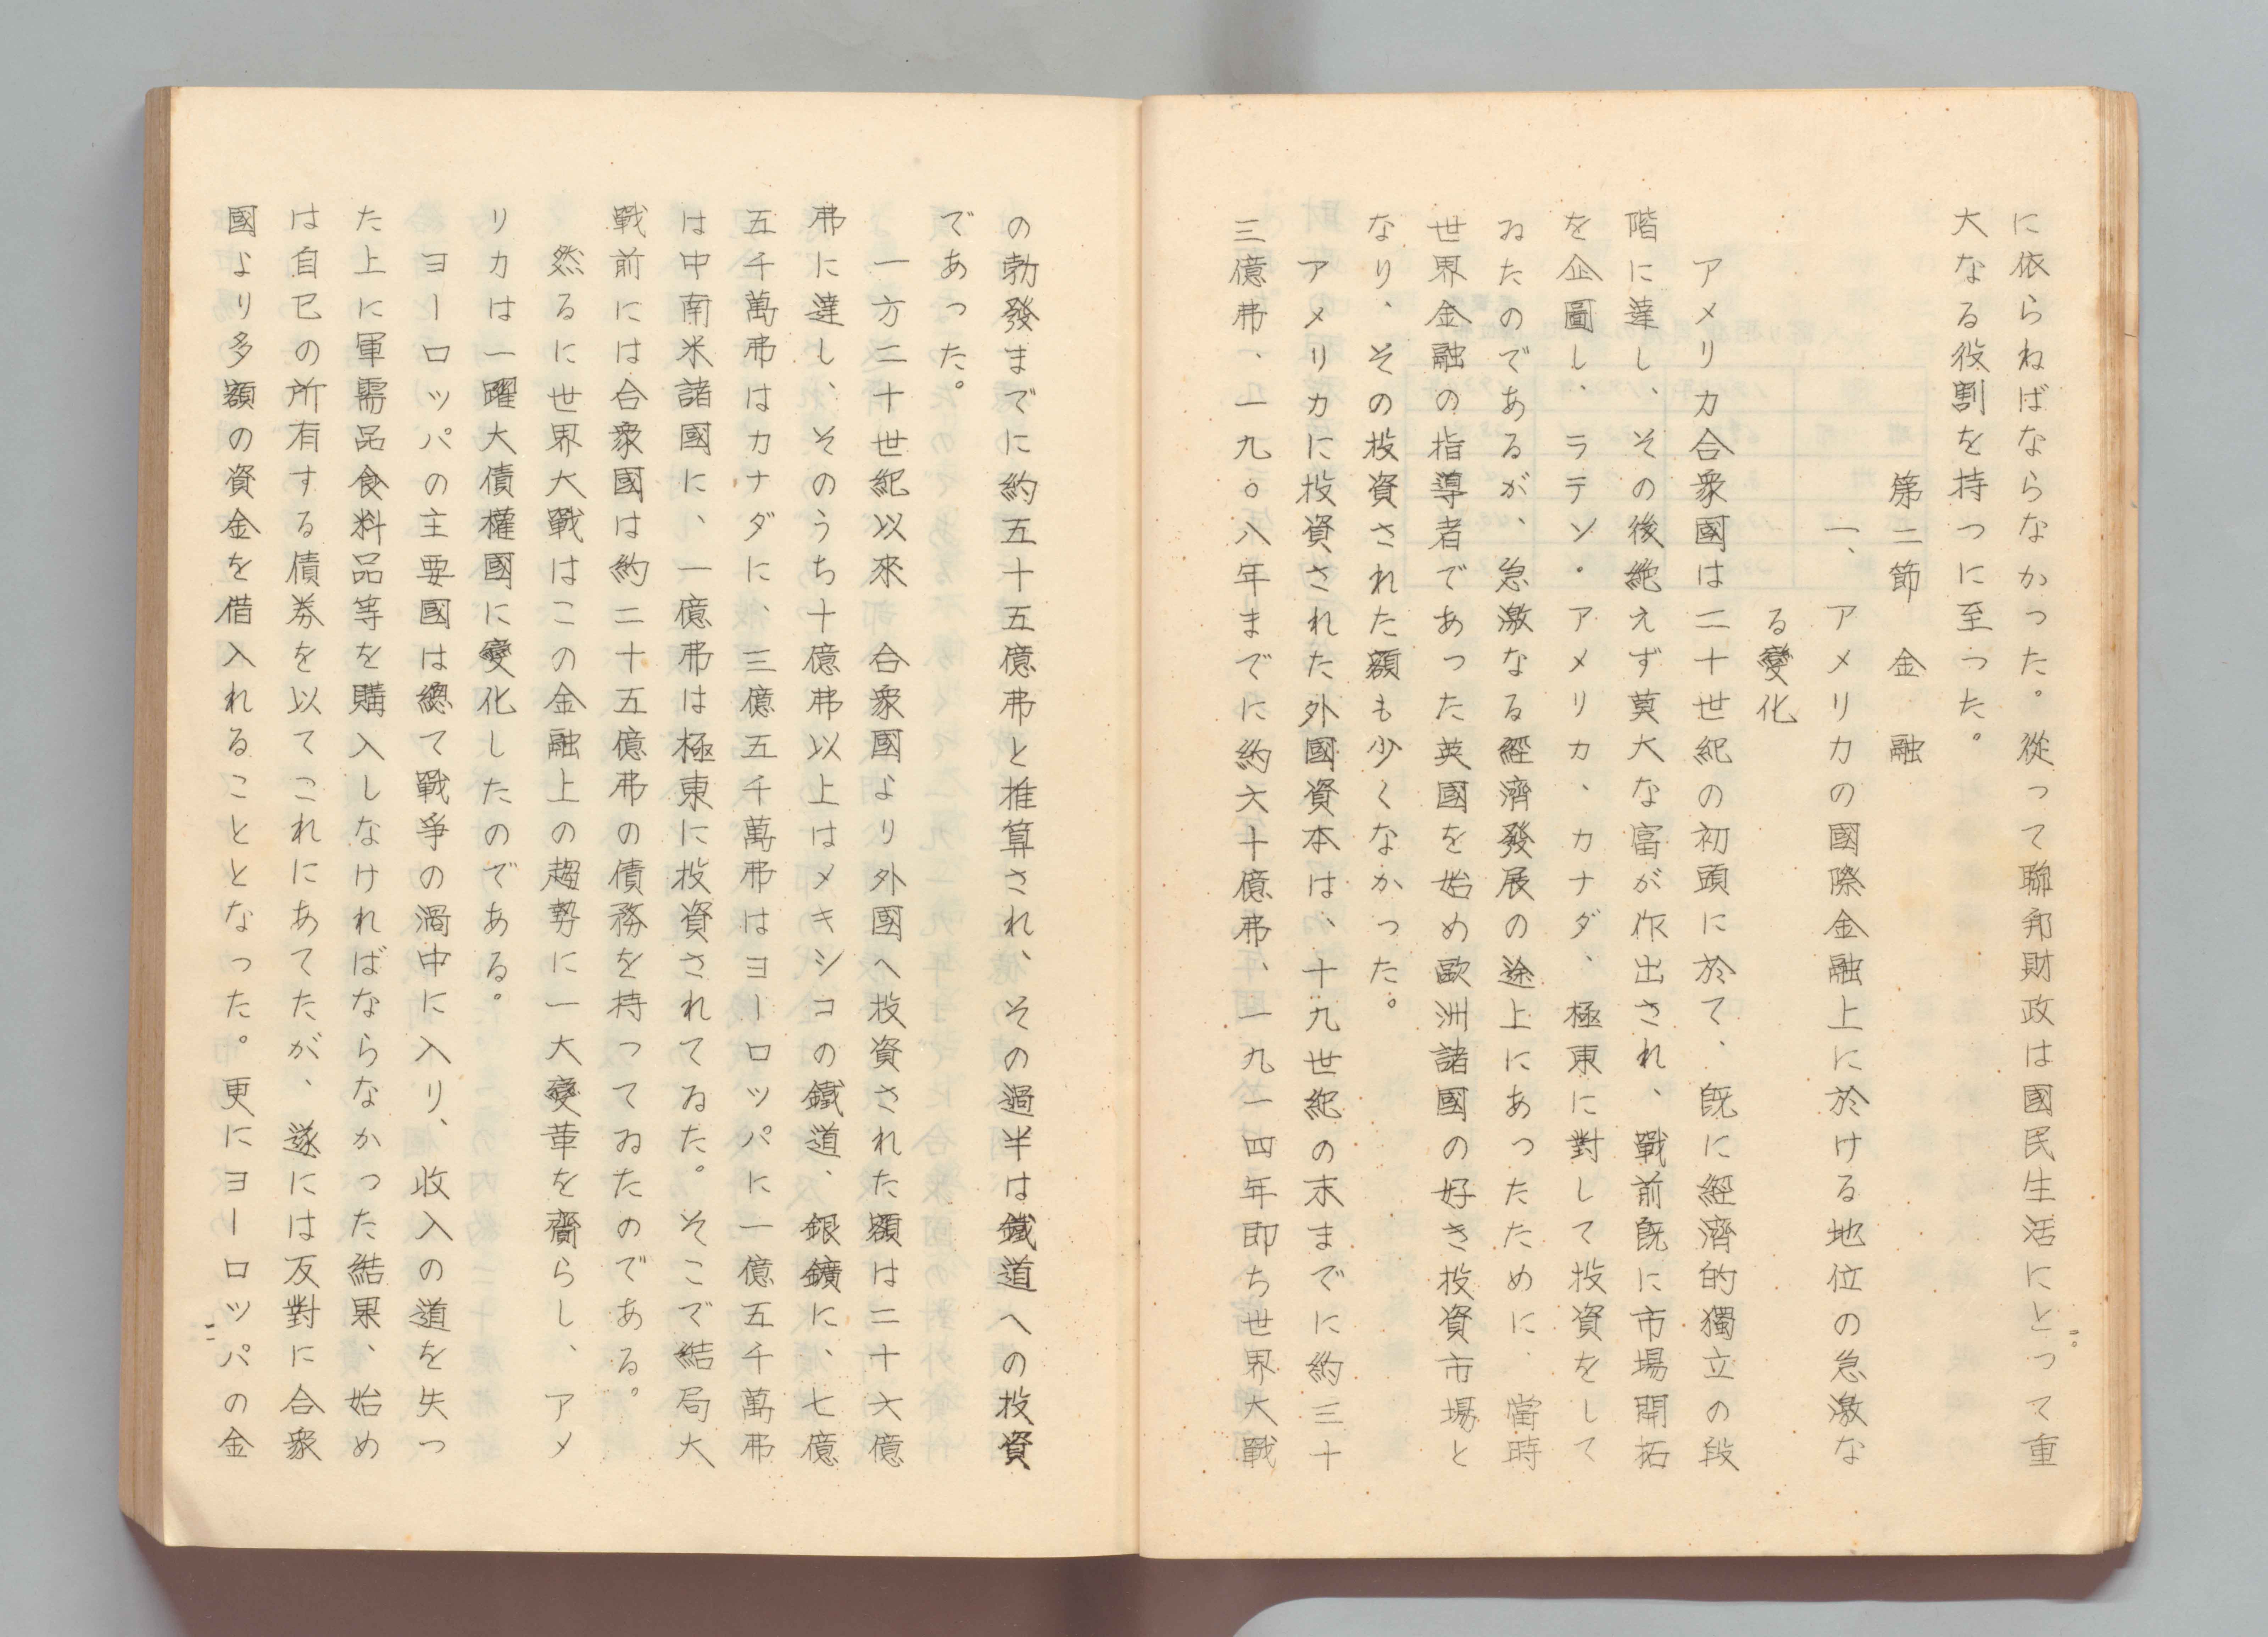 に依らねばならなかった。從って聯邦財政は國民生活にとって重
大なる役割を持つに至った。
第二節　金　融
一、アメリカの國際金融上に於ける地位の急激な
る變化
アメリカ合衆國は二十世紀の初頭に於て、既に經濟的獨立の段
階に達し、その後絶えず莫大な富が作出され、戰前既に市場開拓
を企圖し、ラテン・アメリカ、カナダ、極東に對して投資をして
ゐたのであるが、急激なる經濟發展の途上にあったために、當時
世界金融の指導者であった英國を始め歐洲諸國の好き投資市場と
なり、その投資された額も少くなかった。
アメリカに投資された外國資本は、十九世紀の末までに約三十
三億弗、一九〇八年までに約六十億弗、一九一四年即ち世界大戰
の勃發までに約五十五億弗と推算され、その過半は鐵道への投資
であった。
一方二十世紀以來　合衆國より外國へ投資された額は二十六億
弗に達し、そのうち十億弗以上はメキシコの鐵道、銀鑛に、七億
五千萬弗はカナダに、三億五千萬弗はヨーロッパに一億五千萬弗
は中南米諸國に、一億弗は極東に投資されてゐた。そこで結局大
戰前には合衆國は約二十五億弗の債務を持ってゐたのである。
然るに世界大戰はこの金融上の趨勢に一大變革を齎らし、アメ
リカは一躍大債權國に變化したのである。
ヨーロッパの主要國は總て戰爭の渦中に入り、收入の道を失っ
た上に軍需品食料品等を購入しなければならなかった結果、始め
は自己の所有する債券を以てこれにあてたが、遂には反對に合衆
國より多額の資金を借入れることとなった。更にヨーロッパの金